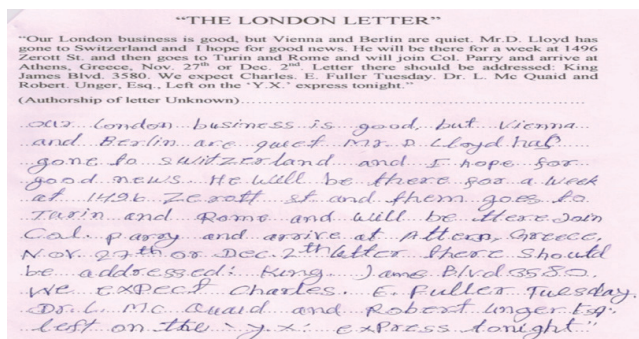 “THE LONDON LETTER”
“Our London business is good, but Vienna and Berlin are quiet. Mr.D. Lloyd has
gone to Switzerland and I hope for good news. He will be there for a week at 1496
Zerott St. and then goes to Turin and Rome and will join Col. Parry and arrive at
Athens, Greece, Nov. 27th or Dec. 2nd. Letter there should be addressed: King
James Blvd. 3580. We expect Charles. E. Fuller Tuesday. Dr. L. Mc Quaid and
Robert. Unger, Esq., Left on the ‘Y.X.’ express tonight.”
(Authorship of letter Unknown)
our London business is good, but Vienna
and Berlin are quiet Mr D Lloyd has
gone to switzerland and I hope for
good news He will be there for a week
at 1496 Zerott st and them goes to
Turin and Rome and will be there Join
Col. parry and arrive at Attens, Greece,
Nov. 27th or Dec. 2th letter there should
be addressed: King Jame Blvd 3580.
We expect Charles. E. Fuller Tuesday.
Dr. L. Mc Quaid and Robert unger Esq.
left on the y.x: express tonight"